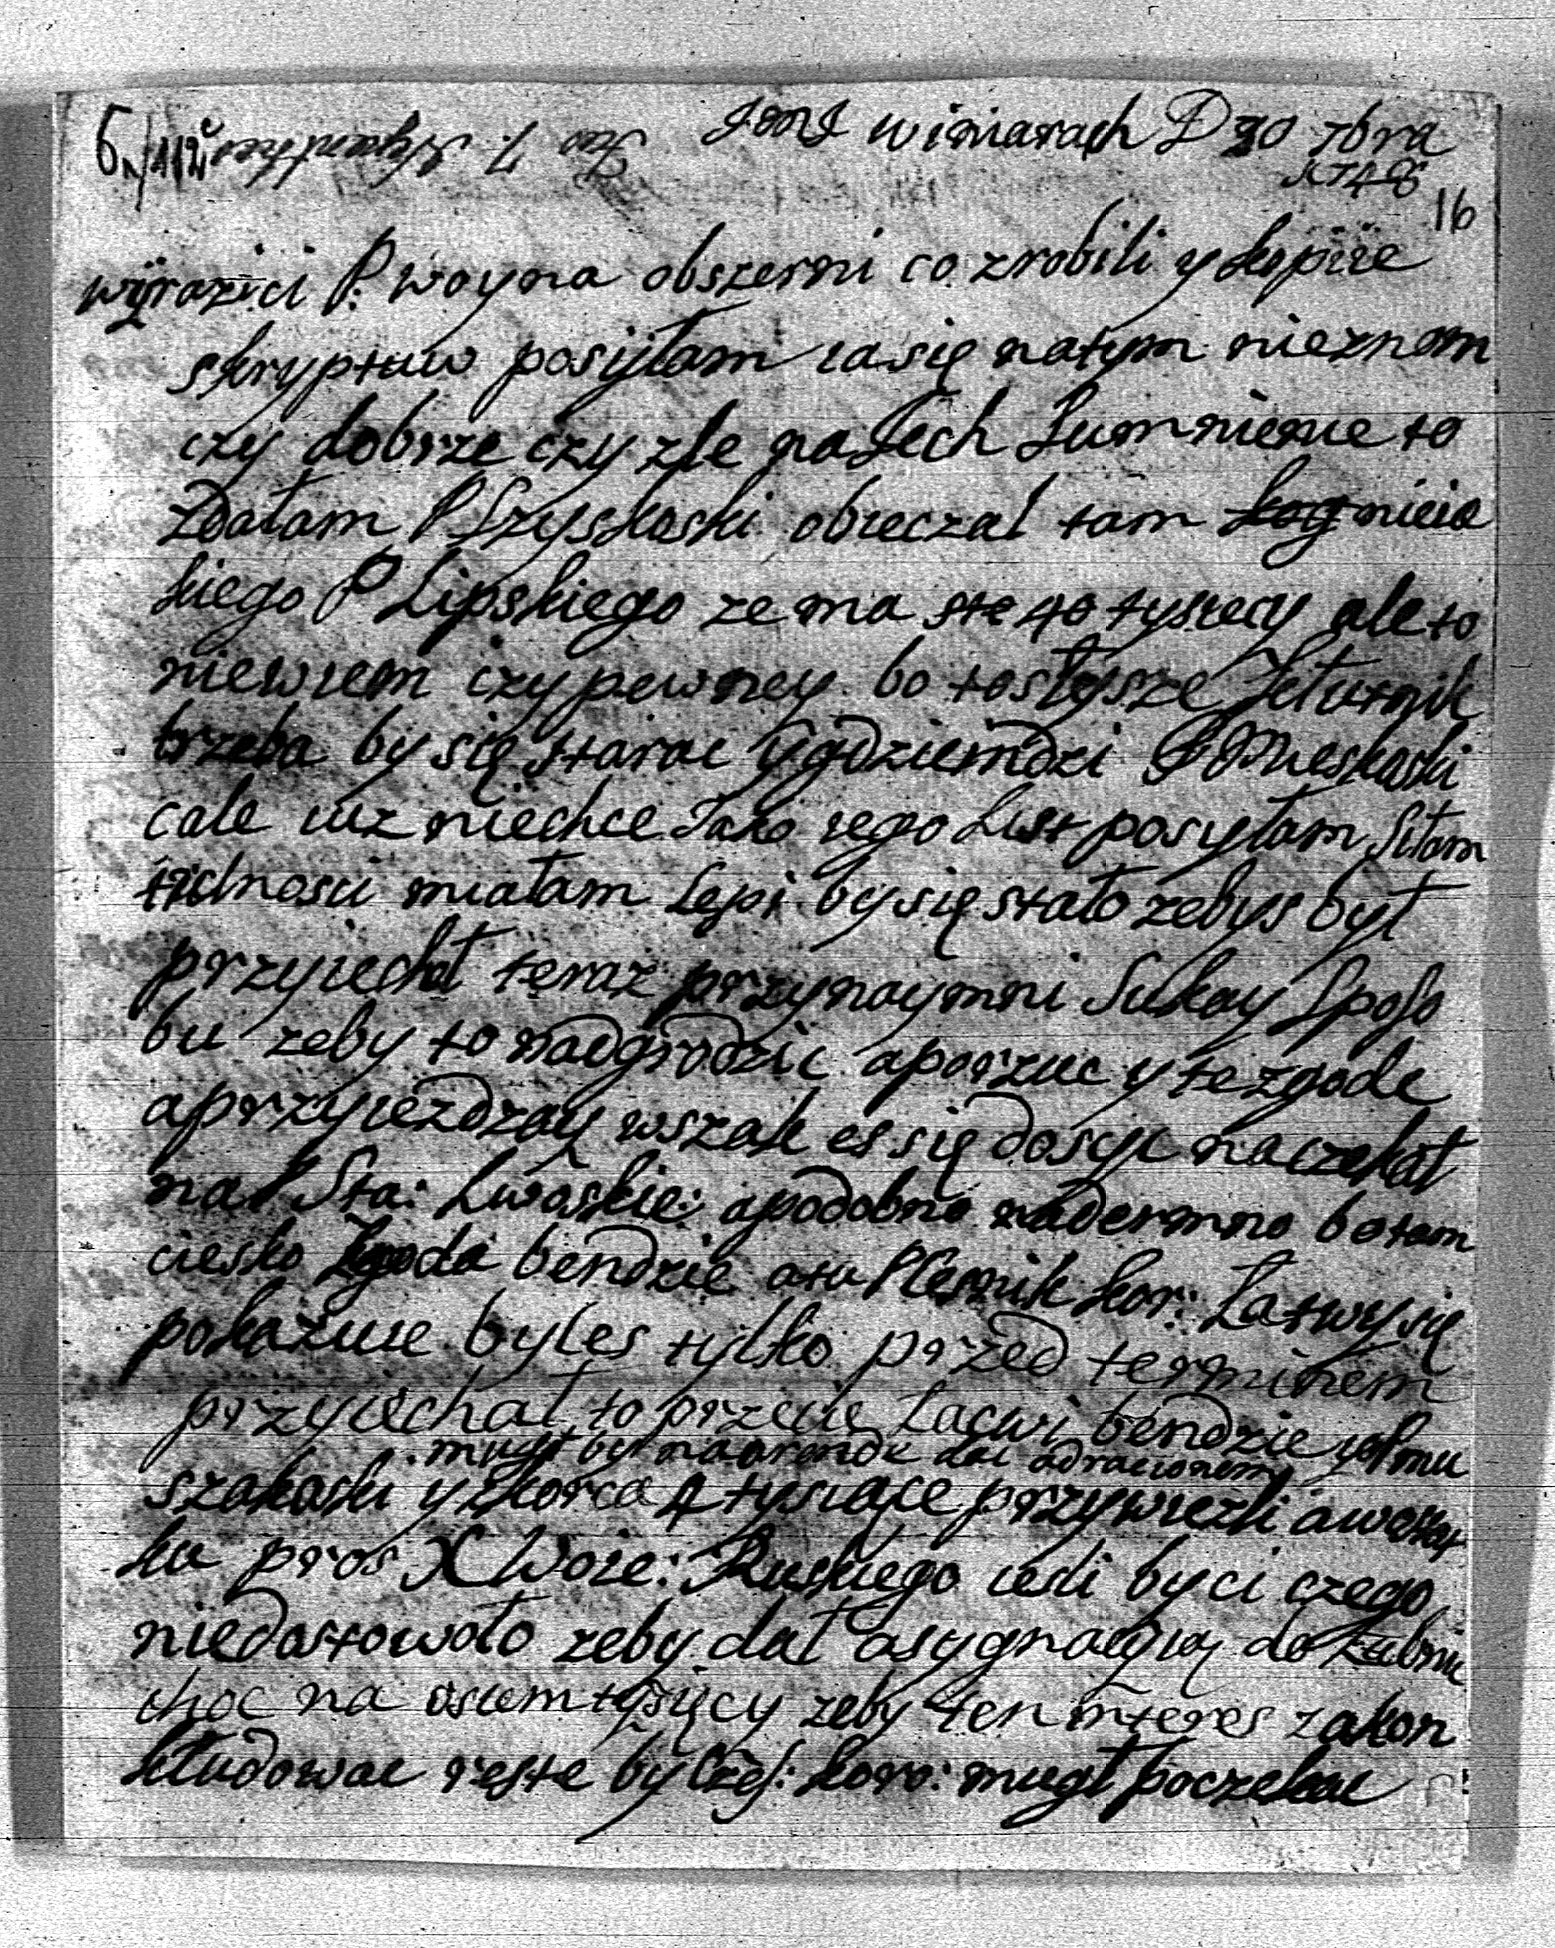 w winiarach D 30 7bra
1748
16
wyrazici P: woyna obszerni co zrobili y kopiie
skryptuw posyłam ia się natym nieznam
czy dobrze czy zle na Jech Sumnienie to
zdałam P Szyskoski obieczał tam
kiego P Lipskiego ze ma sto 40 tysiecy ale to
niewiem czy pewney bo to słysze
trzeba by się starac y gdzieindzi P Mieskoski
cale iuz niechce Jako iego List posyłam Siłam
trudnosci miałam Lepi by się stało zebys był
przyiechał teraz przynaymni Sukay Sposo
bu zeby to nadgrodzic a porzuc y te zgode
a przyiezdzay wszak es się dosyc naczekał
na P Sta: Lwoskie: a podobno nadermno bo tam
ciesko Zgoda bendzie a tu P Cesnik kor: Łatwy się
pokazuie byles tylko przed terminem
przyiechał to przecie Łacwi bendzie
mugł by na arende dac
szakoski y skorca 4 tysiące przywiezli a
ku pros X Woie: Ruskiego iesli by ci czego
niedostowało zeby dał asygnacyią do
choc na osiem tysięcy zeby ten interes zakon
kludowac reste by Czes: koro: mugł poczekac